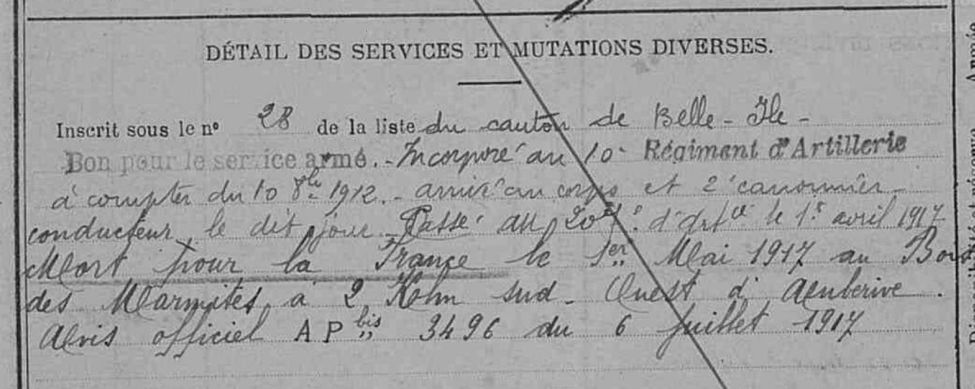 DÉTAIL DES SERVICES ET MUTATIONS DIVERSES.
Inscrit sous le nº 28 de la liste du canton de Belle-Ile -
Bon pour le service armé. - Incorporé au 10e Régiment d'Artillerie
à compter du 10 8bre 1912. - arrivé au corps et 2e canonnier -
conducteur le dit jour. Passé au 20 d'Art ie le 1er avril 1917
Mort pour la France le 1er Mai 1917 au Bois
des Marmites à 2 Kelm sud. Ouest d'Auberive.
Avis officiel A P bis 3496 du 6 juillet 1917